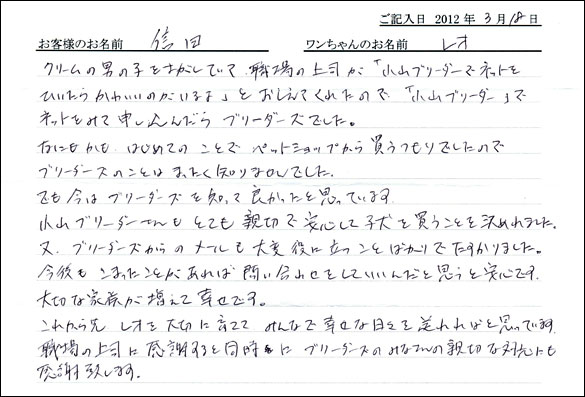 ご記入日 2012年3月18日
お客様のお名前 信田 ワンちゃんのお名前 レオ
クリームの男の子をさがしていて、職場の上司が「小山ブリーダーでネットを
ひいたらかわいいのがいるよ」とおしえてくれたので「小山ブリーダー」で
ネットをみて申し込んだら ブリーダーズでした。
なにもかも はじめてのことで ペットショップから買うつもりでしたので
ブリーダーズのことは まったく知りませんでした。
でも今は ブリーダーズを知って良かったと思っています。
小山ブリーダーさんも とても親切で安心して子犬を買うことを決めれました。
又、ブリーダーズからのメールも大変役に立つことばかりでたすかりました。
今後も こまったことがあれば 問い合わせをしていいんだと思うと安心です。
大切な家族が増えて幸せです。
これから先 レオを大切に育てて みんなで幸せな日々を送れればと思っています。
職場の上司に感謝すると同時に ブリーダーズのみなさんの親切な対応にも
感謝致します。